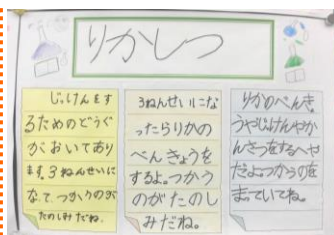 りかしつ
じっけんをす
るためのどうぐ
がおいてあり
ます。3ねんせいに
なって、つかうのが
たのしみだね。
3ねんせいにな
ったらりかの
べんきょうを
するよ。つかう
のがたのし
みだね。
りかのべんき
うやじっけんやか
んさつをするへや
だよ。つかうのを
まっていてね。